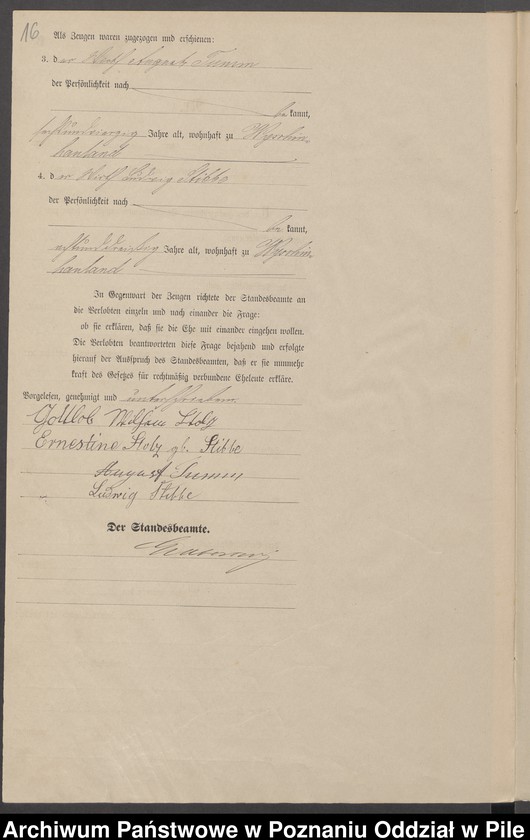 16
Als Zeugen waren zugezogen und erschienen:
3. der Wirth August Timm
der Persönlichkeit nach
bekannt,
Jahre alt, wohnhaft zu Wyschin-
hauland
4. der Wirth Ludwig Stibbe
der Persönlichkeit nach
bekannt,
achtunddreißig Jahre alt, wohnhaft zu Wyschin-
hauland
In Gegenwart der Zeugen richtete der Standesbeamte an
die Verlobten einzeln und nach einander die Frage:
ob sie erklären, daß sie die Ehe mit einander eingehen wollen.
Die Verlobten beantworteten diese Frage bejahend und erfolgte
hierauf der Ausspruch des Standesbeamten, daß er sie nunmehr
kraft des Gesetzes für rechtmäßig verbundene Eheleute erkläre.
Vorgelesen, genehmigt und unterschrieben
Gottlob Stolz
Ernestine Stolz gb. Stibbe
August Timm
Ludwig Stibbe
Der Standesbeamte.
Archiwum Państwowe w Poznaniu Oddział w Pile